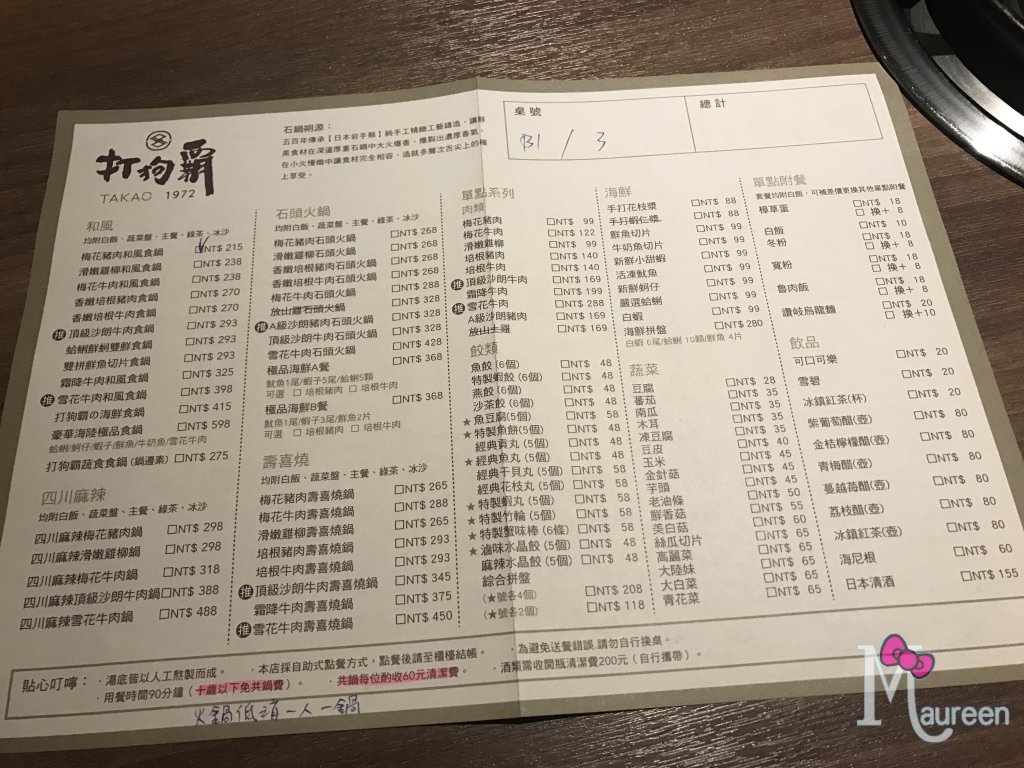 打狗霸
TAKAO 1972
石鍋朔源：
五百年傳承【日本岩手縣】純手工精緻工藝鑄造，讓鮮
美食材在深邃厚重石鍋中大火爆香，爆裂出濃厚香氣。
在小火慢燉中讓食材完全相容，造就多層次舌尖上的極
上享受。
桌號
B1 / 3
總計
和風
均附白飯、蔬菜盤、主餐、綠茶、冰沙
梅花豬肉和風食鍋 □NT$ 215
滑嫩雞柳和風食鍋 □NT$ 238
梅花牛肉和風食鍋 □NT$ 238
香嫩培根豬肉食鍋 □NT$ 270
香嫩培根牛肉食鍋 □NT$ 270
推 頂級沙朗牛肉食鍋 □NT$ 293
蛤蜊鮮蚵雙鮮食鍋 □NT$ 293
雙拼鮮魚切片食鍋 □NT$ 293
霜降牛肉和風食鍋 □NT$ 325
推 雪花牛肉和風食鍋 □NT$ 398
打狗霸の海鮮食鍋 □NT$ 415
豪華海陸極品食鍋 □NT$ 598
蛤蜊/蚵仔/蝦子/鮮魚/牛奶魚/雪花牛肉
打狗霸蔬食食鍋 (鍋邊素) □NT$ 275
四川麻辣
均附白飯、蔬菜盤、主餐、綠茶、冰沙
四川麻辣梅花豬肉鍋 □NT$ 298
四川麻辣滑嫩雞柳鍋 □NT$ 298
四川麻辣梅花牛肉鍋 □NT$ 318
四川麻辣頂級沙朗牛肉鍋 □NT$ 388
四川麻辣雪花牛肉鍋 □NT$ 488
石頭火鍋
均附白飯、蔬菜盤、主餐、綠茶、冰沙
梅花豬肉石頭火鍋 □NT$ 268
滑嫩雞柳石頭火鍋 □NT$ 268
香嫩培根豬肉石頭火鍋 □NT$ 268
香嫩培根牛肉石頭火鍋 □NT$ 288
梅花牛肉石頭火鍋 □NT$ 288
放山雞石頭火鍋 □NT$ 328
推 A級沙朗豬肉石頭火鍋 □NT$ 328
頂級沙朗牛肉石頭火鍋 □NT$ 328
雪花牛肉石頭火鍋 □NT$ 428
極品海鮮A餐 □NT$ 368
魷魚1尾/蝦子5尾/蛤蜊5顆
可選 □ 培根豬肉 □ 培根牛肉
極品海鮮B餐 □NT$ 368
魷魚1尾/蝦子3尾/鮮魚2片
可選 □ 培根豬肉 □ 培根牛肉
壽喜燒
均附白飯、蔬菜盤、主餐、綠茶、冰沙
梅花豬肉壽喜燒鍋 □NT$ 265
梅花牛肉壽喜燒鍋 □NT$ 288
滑嫩雞柳壽喜燒鍋 □NT$ 265
培根豬肉壽喜燒鍋 □NT$ 293
培根牛肉壽喜燒鍋 □NT$ 293
推 頂級沙朗牛肉壽喜燒鍋 □NT$ 345
霜降牛肉壽喜燒鍋 □NT$ 375
推 雪花牛肉壽喜燒鍋 □NT$ 450
單點系列
肉類
梅花豬肉 □NT$ 99
梅花牛肉 □NT$ 122
滑嫩雞柳 □NT$ 99
培根豬肉 □NT$ 140
培根牛肉 □NT$ 140
推 頂級沙朗牛肉 □NT$ 169
霜降牛肉 □NT$ 199
推 雪花牛肉 □NT$ 288
A級沙朗豬肉 □NT$ 169
放山土雞 □NT$ 169
餃類
魚餃 (6個) □NT$ 48
特製蝦餃 (6個) □NT$ 48
燕餃 (6個) □NT$ 48
沙茶餃 (6個) □NT$ 48
★ 魚豆腐(5個) □NT$ 58
★ 特製魚餅(5個) □NT$ 48
經典貢丸 (5個) □NT$ 48
★ 經典魚丸 (5個) □NT$ 48
經典干貝丸 (5個) □NT$ 58
經典花枝丸 (5個) □NT$ 58
★ 特製蝦丸 (5個) □NT$ 58
★ 特製竹輪 (5個) □NT$ 58
★ 特製蟹味棒 (6條) □NT$ 58
★ 滷味水晶餃 (5個) □NT$ 48
麻辣水晶餃 (5個) □NT$ 48
綜合拼盤
(★號各4個) □NT$ 208
(★號各2個) □NT$ 118
海鮮
手打花枝漿 □NT$ 88
手打蝦仁漿 □NT$ 88
鮮魚切片 □NT$ 99
牛奶魚切片 □NT$ 99
新鮮小甜蝦 □NT$ 99
活凍魷魚 □NT$ 99
新鮮蚵仔 □NT$ 99
嚴選蛤蜊 □NT$ 99
白蝦 □NT$ 99
海鮮拼盤 □NT$ 280
白蝦 6尾/蛤蜊 10顆/鮮魚 4片
蔬菜
豆腐 □NT$ 28
蕃茄 □NT$ 35
南瓜 □NT$ 35
木耳 □NT$ 35
凍豆腐 □NT$ 40
豆皮 □NT$ 45
玉米 □NT$ 45
金針菇 □NT$ 45
芋頭 □NT$ 50
老油條 □NT$ 55
鮮香菇 □NT$ 60
美白菇 □NT$ 65
絲瓜切片 □NT$ 65
高麗菜 □NT$ 65
大陸妹 □NT$ 65
大白菜 □NT$ 65
青花菜 □NT$ 65
單點附餐
套餐均附白飯，可補差價更換其他單點附餐
樟草蛋 □NT$ 18
□ 換+ 8
白飯 □NT$ 10
冬粉 □NT$ 18
□ 換+ 8
寬粉 □NT$ 18
□ 換+ 8
魯肉飯 □NT$ 18
□ 換+ 8
讚岐烏龍麵 □NT$ 20
□ 換+10
飲品
可口可樂 □NT$ 20
雪碧 □NT$ 20
冰鎮紅茶(杯) □NT$ 20
紫葡萄醋(壺) □NT$ 80
金桔檸檬醋(壺) □NT$ 80
青梅醋(壺) □NT$ 80
蔓越莓醋(壺) □NT$ 80
荔枝醋(壺) □NT$ 80
冰鎮紅茶(壺) □NT$ 80
海尼根 □NT$ 60
日本清酒 □NT$ 155
貼心叮嚀：
·湯底皆以人工熬製而成。 ·本店採自助式點餐方式，點餐後請至櫃檯結帳。 ·為避免送餐錯誤,請勿自行換桌。
·用餐時間90分鐘（十歲以下免共鍋費）。 ·共鍋每位酌收60元清潔費。 ·酒類需收開瓶清潔費200元（自行攜帶）。
火鍋低消一人一鍋
Maureen